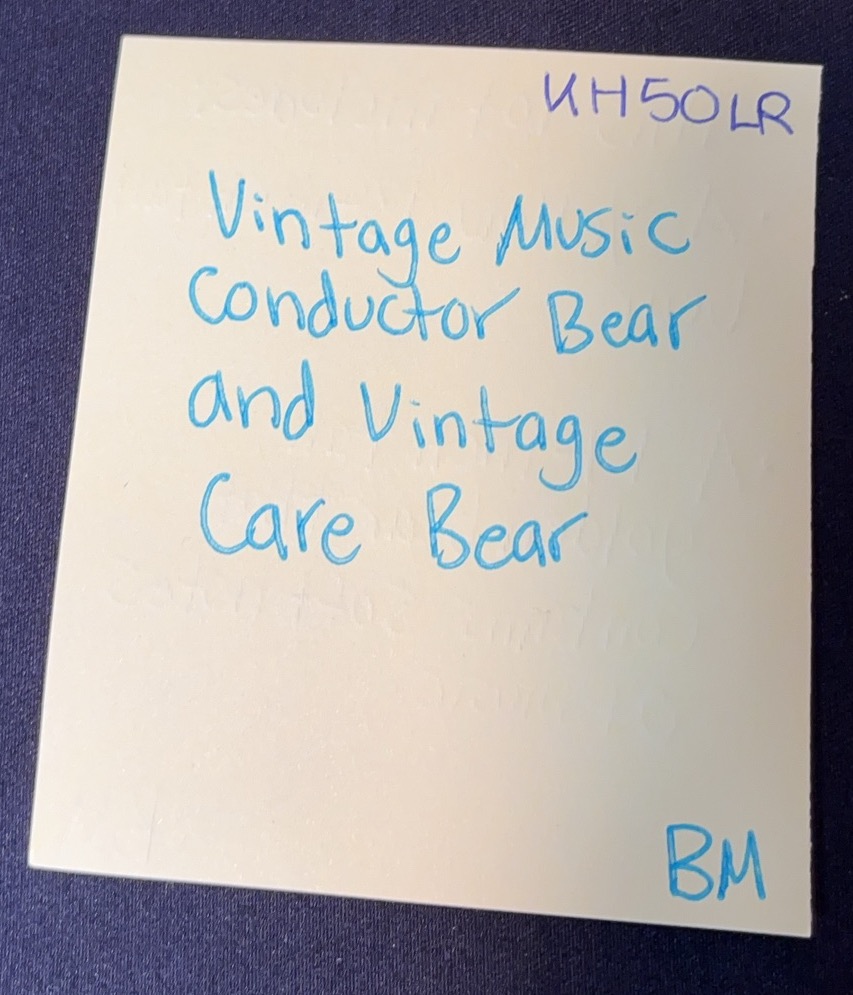 UH50LR
Vintage Music
Conductor Bear
and Vintage
Care Bear
BM